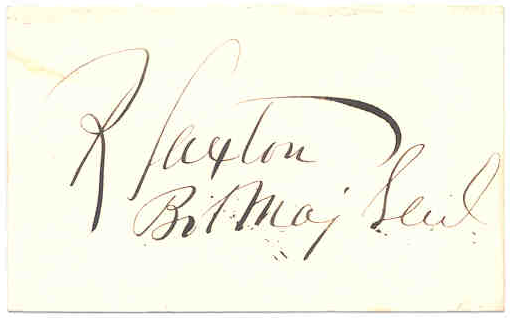 R Saxton
Bvt Maj Genl